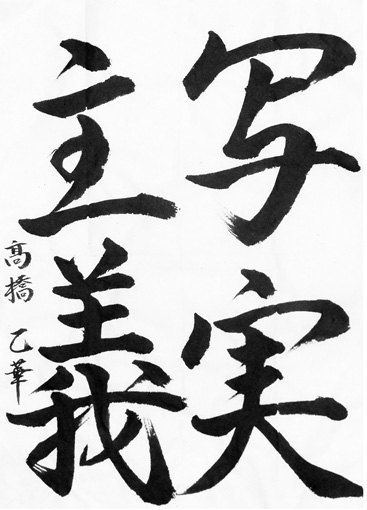 写実
主義
高橋 乙華